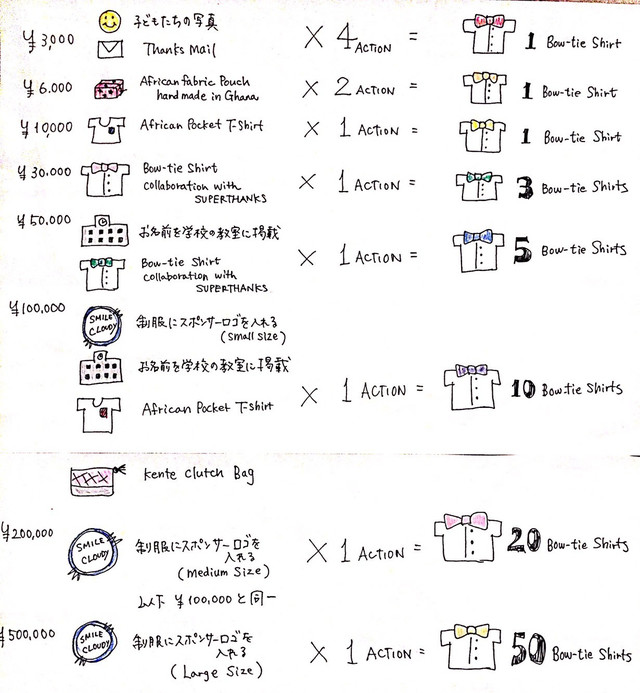 ¥3,000 子どもたちの写真
Thanks Mail × 4 ACTION = 1 Bow-tie Shirt
¥6.000 African fabric Pouch
handmade in Ghana × 2 ACTION = 1 Bow-tie Shirt
¥10,000 African Pocket T-Shirt × 1 ACTION = 1 Bow-tie Shirt
¥30,000 Bow-tie Shirt
collaboration with
SUPERTHANKS × 1 ACTION = 3 Bow-tie Shirts
¥50,000 お名前を学校の教室に掲載
Bow-tie Shirt
collaboration with
SUPERTHANKS × 1 ACTION = 5 Bow-tie Shirts
¥100,000 SMILE
CLOUDY
制服にスポンサーロゴを入れる
(Small size)
お名前を学校の教室に掲載
African Pocket T-Shirt × 1 ACTION = 10 Bow-tie Shirts
Kente Clutch Bag
¥200,000 SMILE
CLOUDY
制服にスポンサーロゴを
入れる
(Medium Size)
以下 ¥100,000 と同一 × 1 ACTION = 20 Bow-tie Shirts
¥500,000 SMILE
CLOUDY
制服にスポンサーロゴを
入れる
(Large Size) × 1 ACTION = 50 Bow-tie Shirts